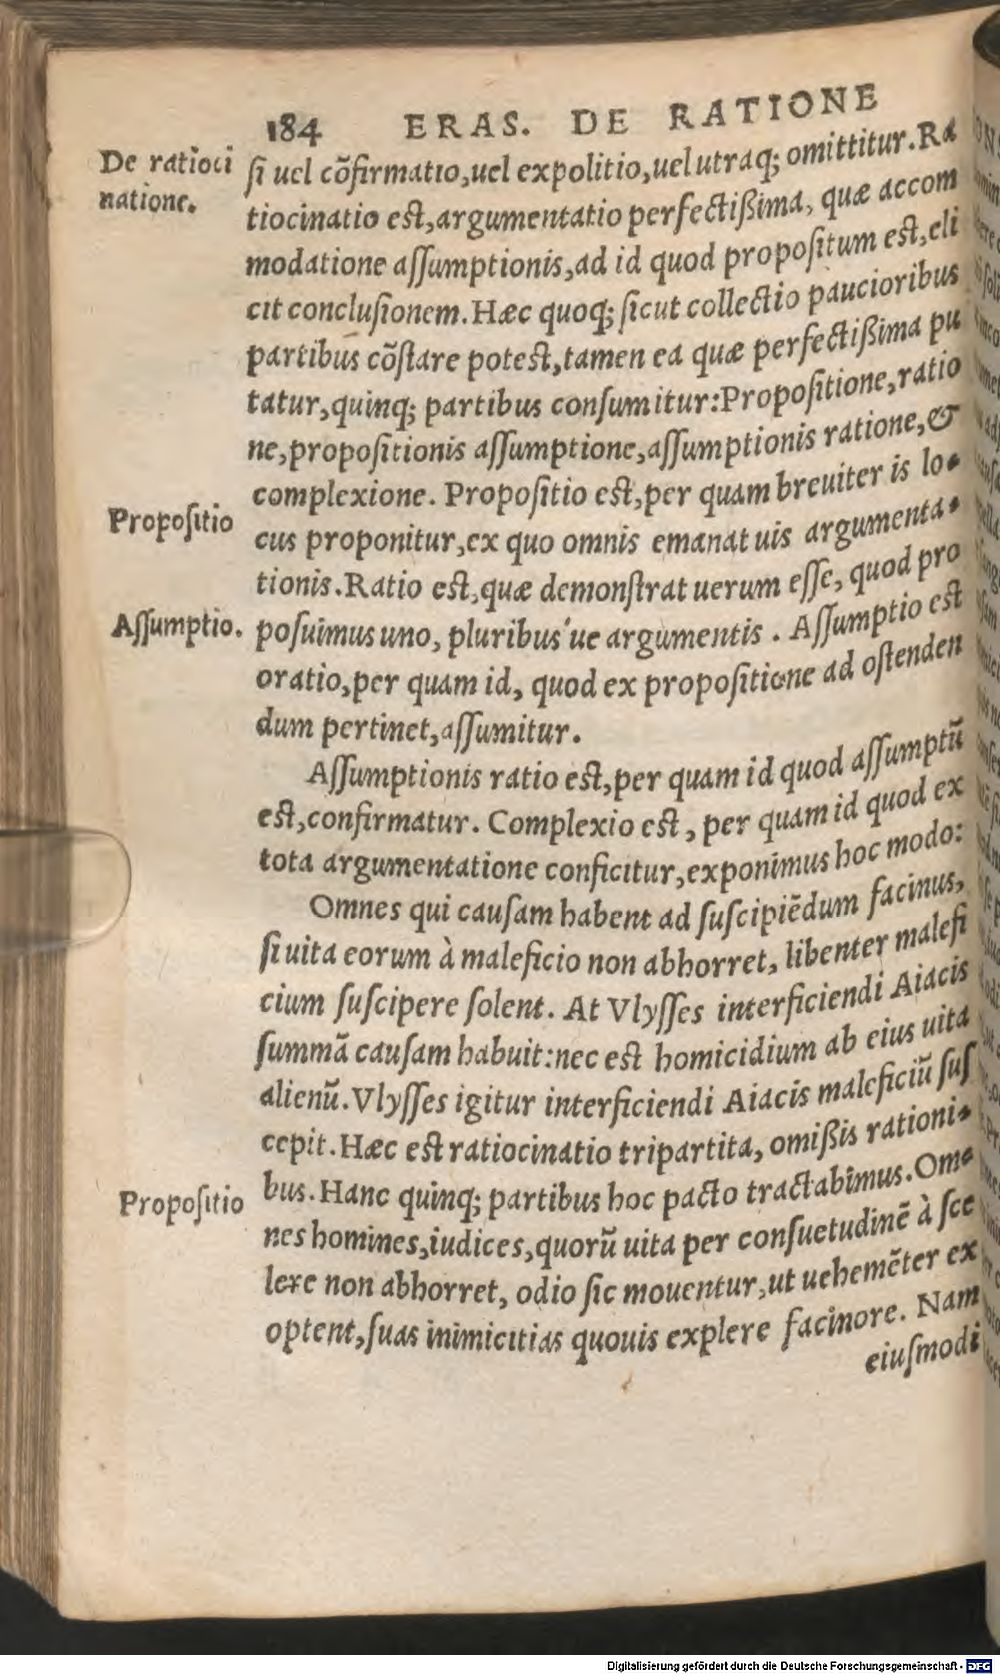 184 ERAS. DE RATIONE
De ratioci
natione.
si uel cõfirmatio, uel expolitio, uel utraq; omittitur. Ra
tiocinatio est, argumentatio perfectißima, quæ accom
modatione assumptionis, ad id quod propositum est, eli
cit conclusionem. Hæc quoq; sicut collectio paucioribus
partibus cõstare potest, tamen ea quæ perfectißima pu
tatur, quinq; partibus consumitur: Propositione, ratio
ne, propositionis assumptione, assumptionis ratione, &
complexione. Propositio est, per quam breuiter is lo-
Propositio
cus proponitur, ex quo omnis emanat uis argumenta-
tionis. Ratio est, quæ demonstrat uerum esse, quod pro
Assumptio.
posuimus uno, pluribus'ue argumentis. Assumptio est
oratio, per quam id, quod ex propositione ad ostenden
dum pertinet, assumitur.
Assumptionis ratio est, per quam id quod assumptũ
est, confirmatur. Complexio est, per quam id quod ex
tota argumentatione conficitur, exponimus hoc modo:
Omnes qui causam habent ad suscipiẽdum facinus,
si uita eorum à maleficio non abhorret, libenter malefi
cium suscipere solent. At Vlysses interficiendi Aiacis
summã causam habuit: nec est homicidium ab eius uita
alienũ. Vlysses igitur interficiendi Aiacis maleficiũ sus
cepit. Hæc est ratiocinatio tripartita, omißis rationi-
Propositio
bus. Hanc quinq; partibus hoc pacto tractabimus. Om-
nes homines, iudices, quorũ uita per consuetudinẽ à sce
lere non abhorret, odio sic mouentur, ut uehemẽter ex
optent, suas inimicitias quouis explere facinore. Nam
eiusmodi
Digitalisierung gefördert durch die Deutsche Forschungsgemeinschaft - DFG